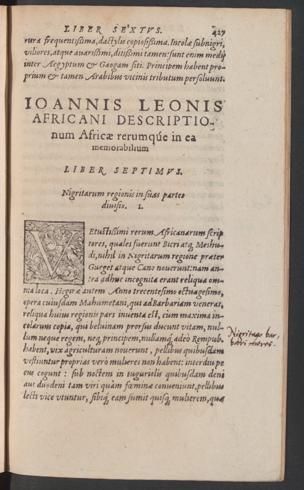 LIBER SEXTVS. 427
rura frequentissima, dactylis copiosissima. Incolæ subnigri,
viliores, atque avarissimi, ditissimi tamen: sunt enim medij
inter Aegyptum & Gaogam siti. Principem habent pro-
prium & tamen Arabibus vicinis tributum persoluunt.
IOANNIS LEONIS
AFRICANI DESCRIPTIO-
num Africæ rerumque in ea
memorabilium
LIBER SEPTIMVS.
Nigritarum regionis in suas partes
diuisio. 1.
VEtustissimi rerum Africanarum scrip
tores, quales fuerunt Bicri atq; Meshu-
di, nihil in Nigritarum regione præter
Gueguet atque Cano nouerunt: nam an-
tea adhuc incognita erant reliqua om-
nia loca. Hegiræ autem Anno trecentesimo octuagesimo,
opera cuiusdam Mahumetani, qui ad Barbariam venerat,
reliqua huius regionis pars inuenta est, cum maxima in-
colarum copia, qui beluinam prorsus ducunt vitam, nul-
lum neque regem, neq; principem, nullamq; adeò Rempub.
habent, vix agriculturam nouerunt, pellibus quibusdam
vestiuntur proprias verò mulieres non habent: interdiu pe
cus cogunt: sub noctem in tuguriolis quibusdam deni
aut duodeni tam viri quàm fœminæ conueniunt, pellibus
lecti vice vtuntur, sibiq; eam sumit quisq; mulierem, quæ
Nigritaru bar
bari mores.